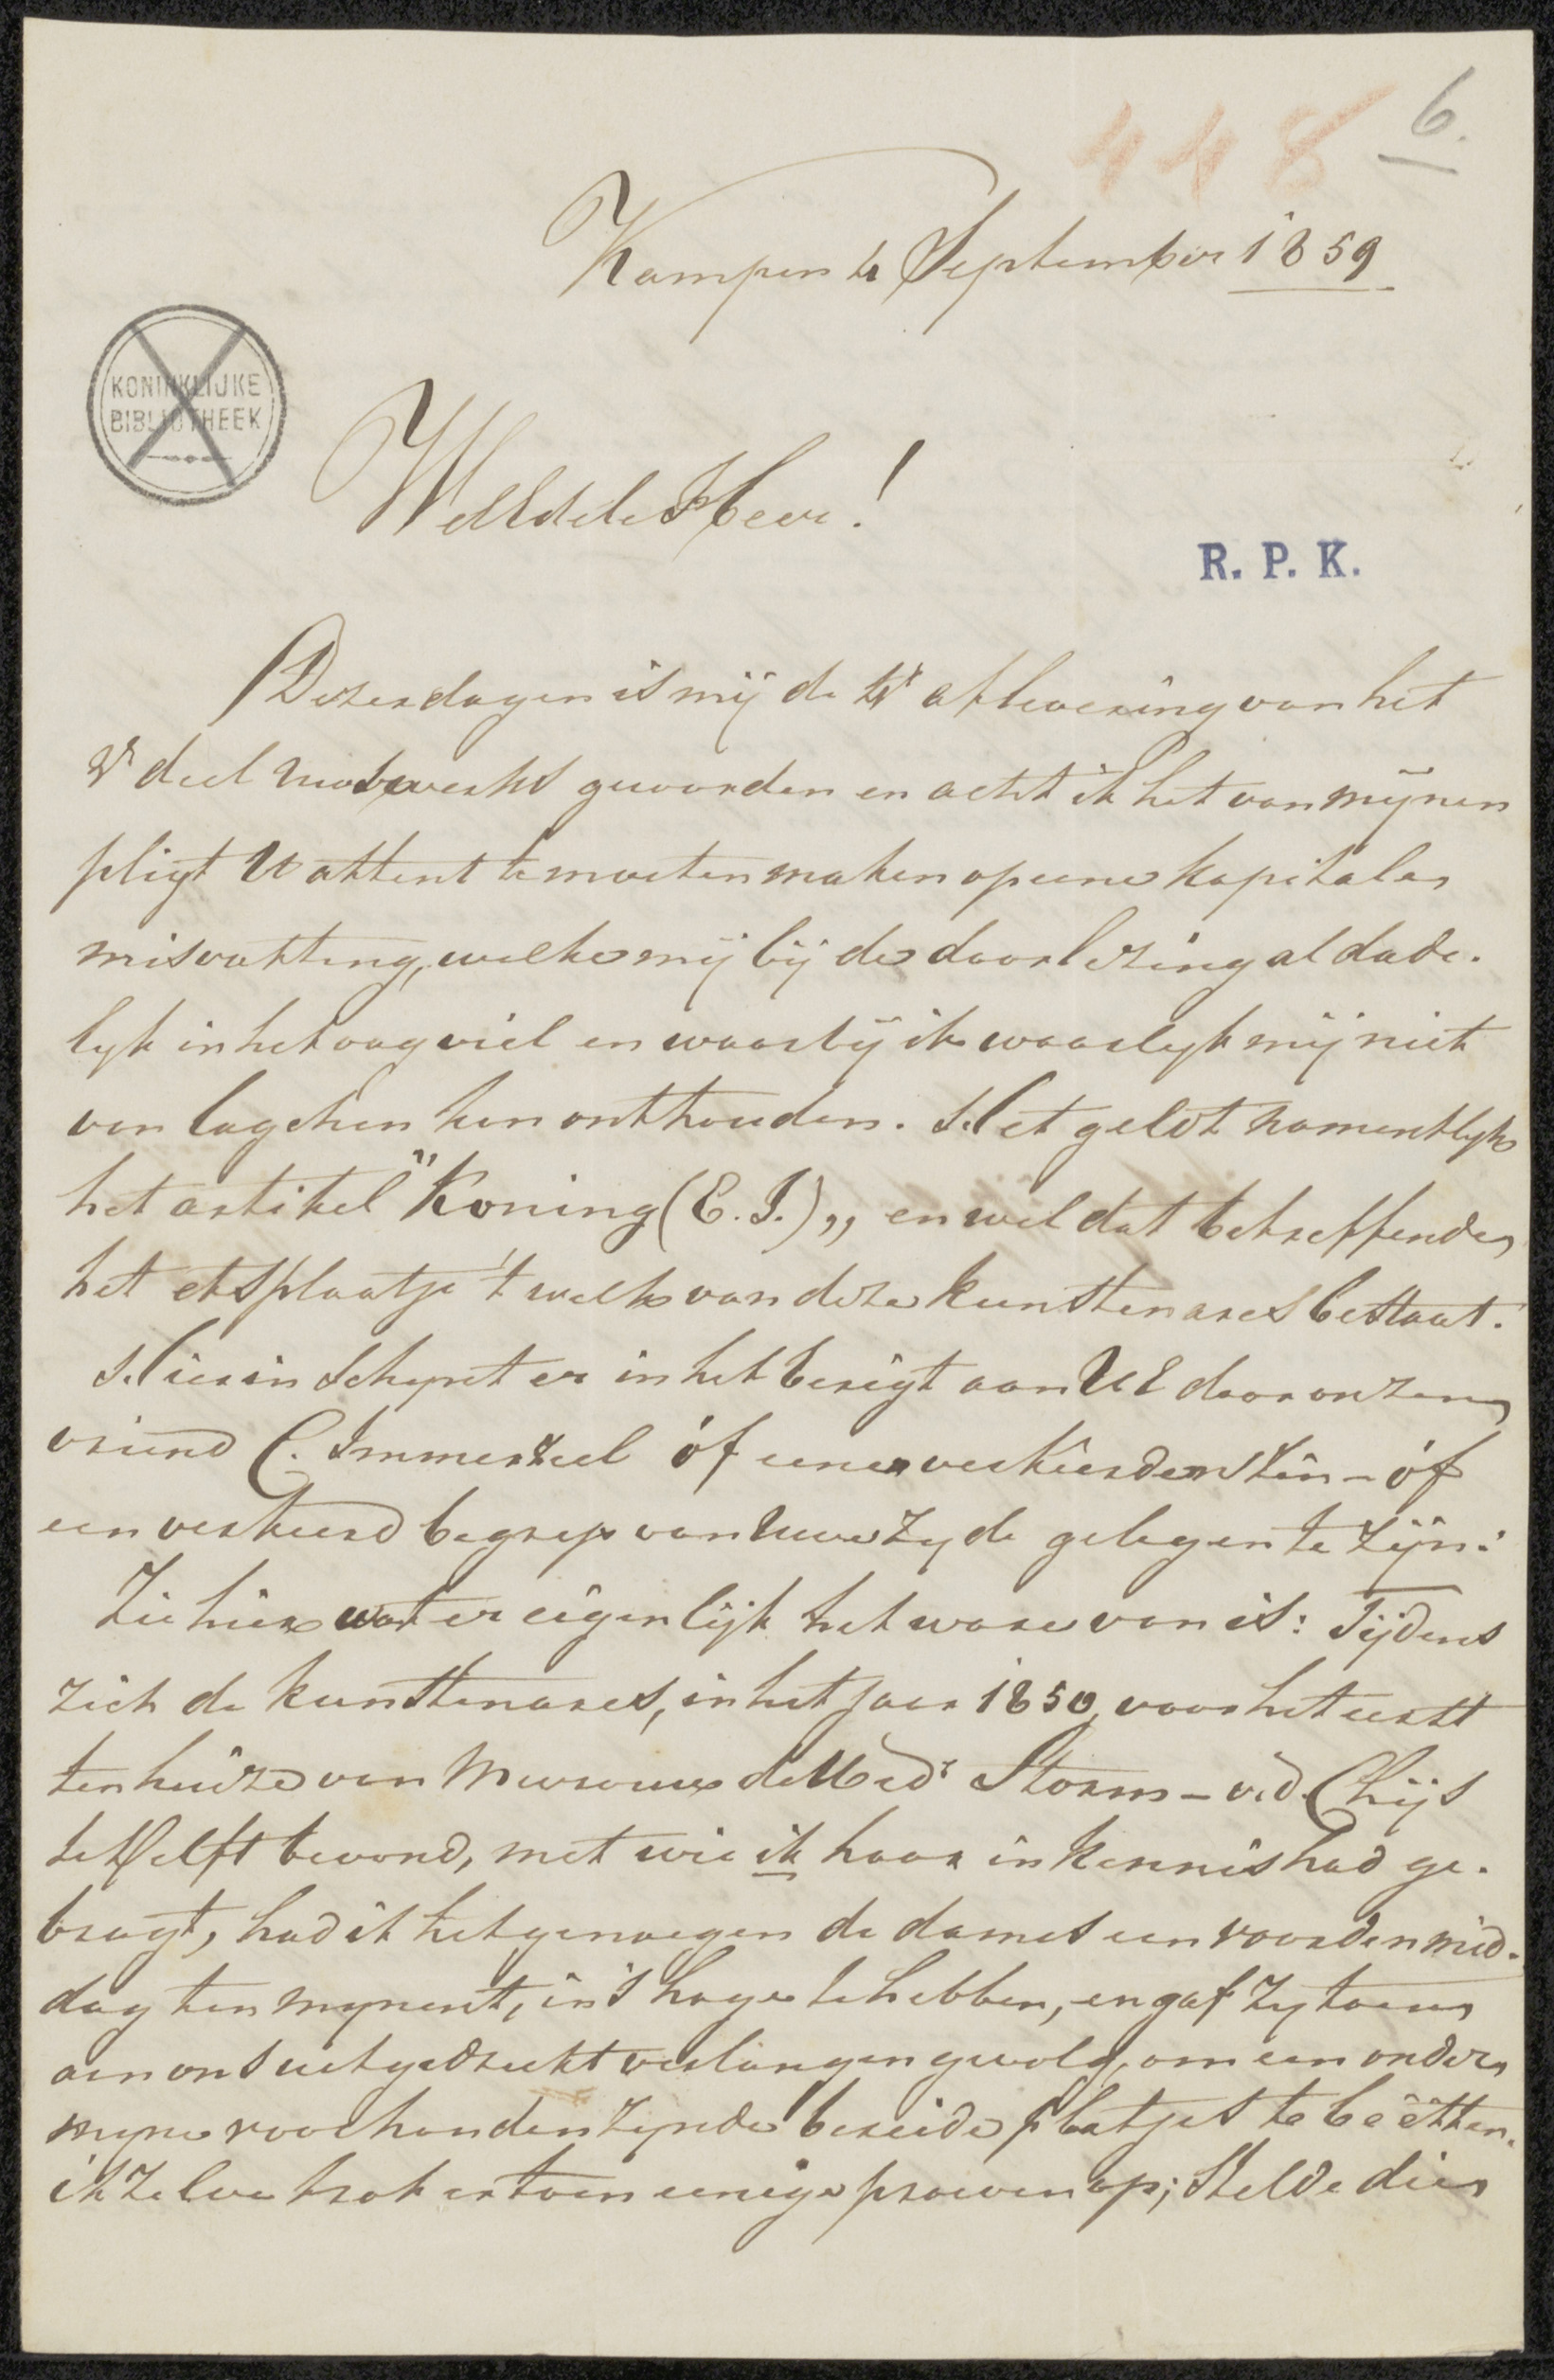 448
6.
Kampen September 1859
KONINKLIJKE
BIBLIOTHEEK
WelEdele Heer!
R. P. K.
Dezer dagen is mij de aflevering van het
deel Uwes werks geworden en acht ik het van mijnen
pligt U attent te moeten maken op eene kapitale
misvatting, welke mij bij de doorlezing al dade-
lyk in het oog viel en waarbij ik waarlyk mij niet
van lagchen kon onthouden. Het geldt namentlyk
het artikel "Koning (E. J.)„ en wel dat betreffende
het etsplaatje 't welk van deze kunstenares bestaat.
Hierin schynt er in het berigt aan UE door onzen
vriend C. Immerzeel óf eene verkeerde zin - óf
een verkeerd begrip van Uwe zyde gelegen te zijn:
Zie hier wat er eigenlijk het ware van is: Tijdens
zich de kunstenares, in het jaar 1850, voor het eerst
ten huize van Mevrouw de Wed.ᵉ Storm - v.d. Chijs
te Delft bevond, met wie ik haar in kennis had ge-
bragt, had ik het genoegen de dames een voordenmid-
dag ten mynent, in 's hage te hebben, en gaf zy toen
aan ons uitgedrukt verlangen gevolg, om een onder
myne voorhanden zynde bereide plaatjes te beëtsen.
ik zelve trok er toen eenige proeven op; stelde die